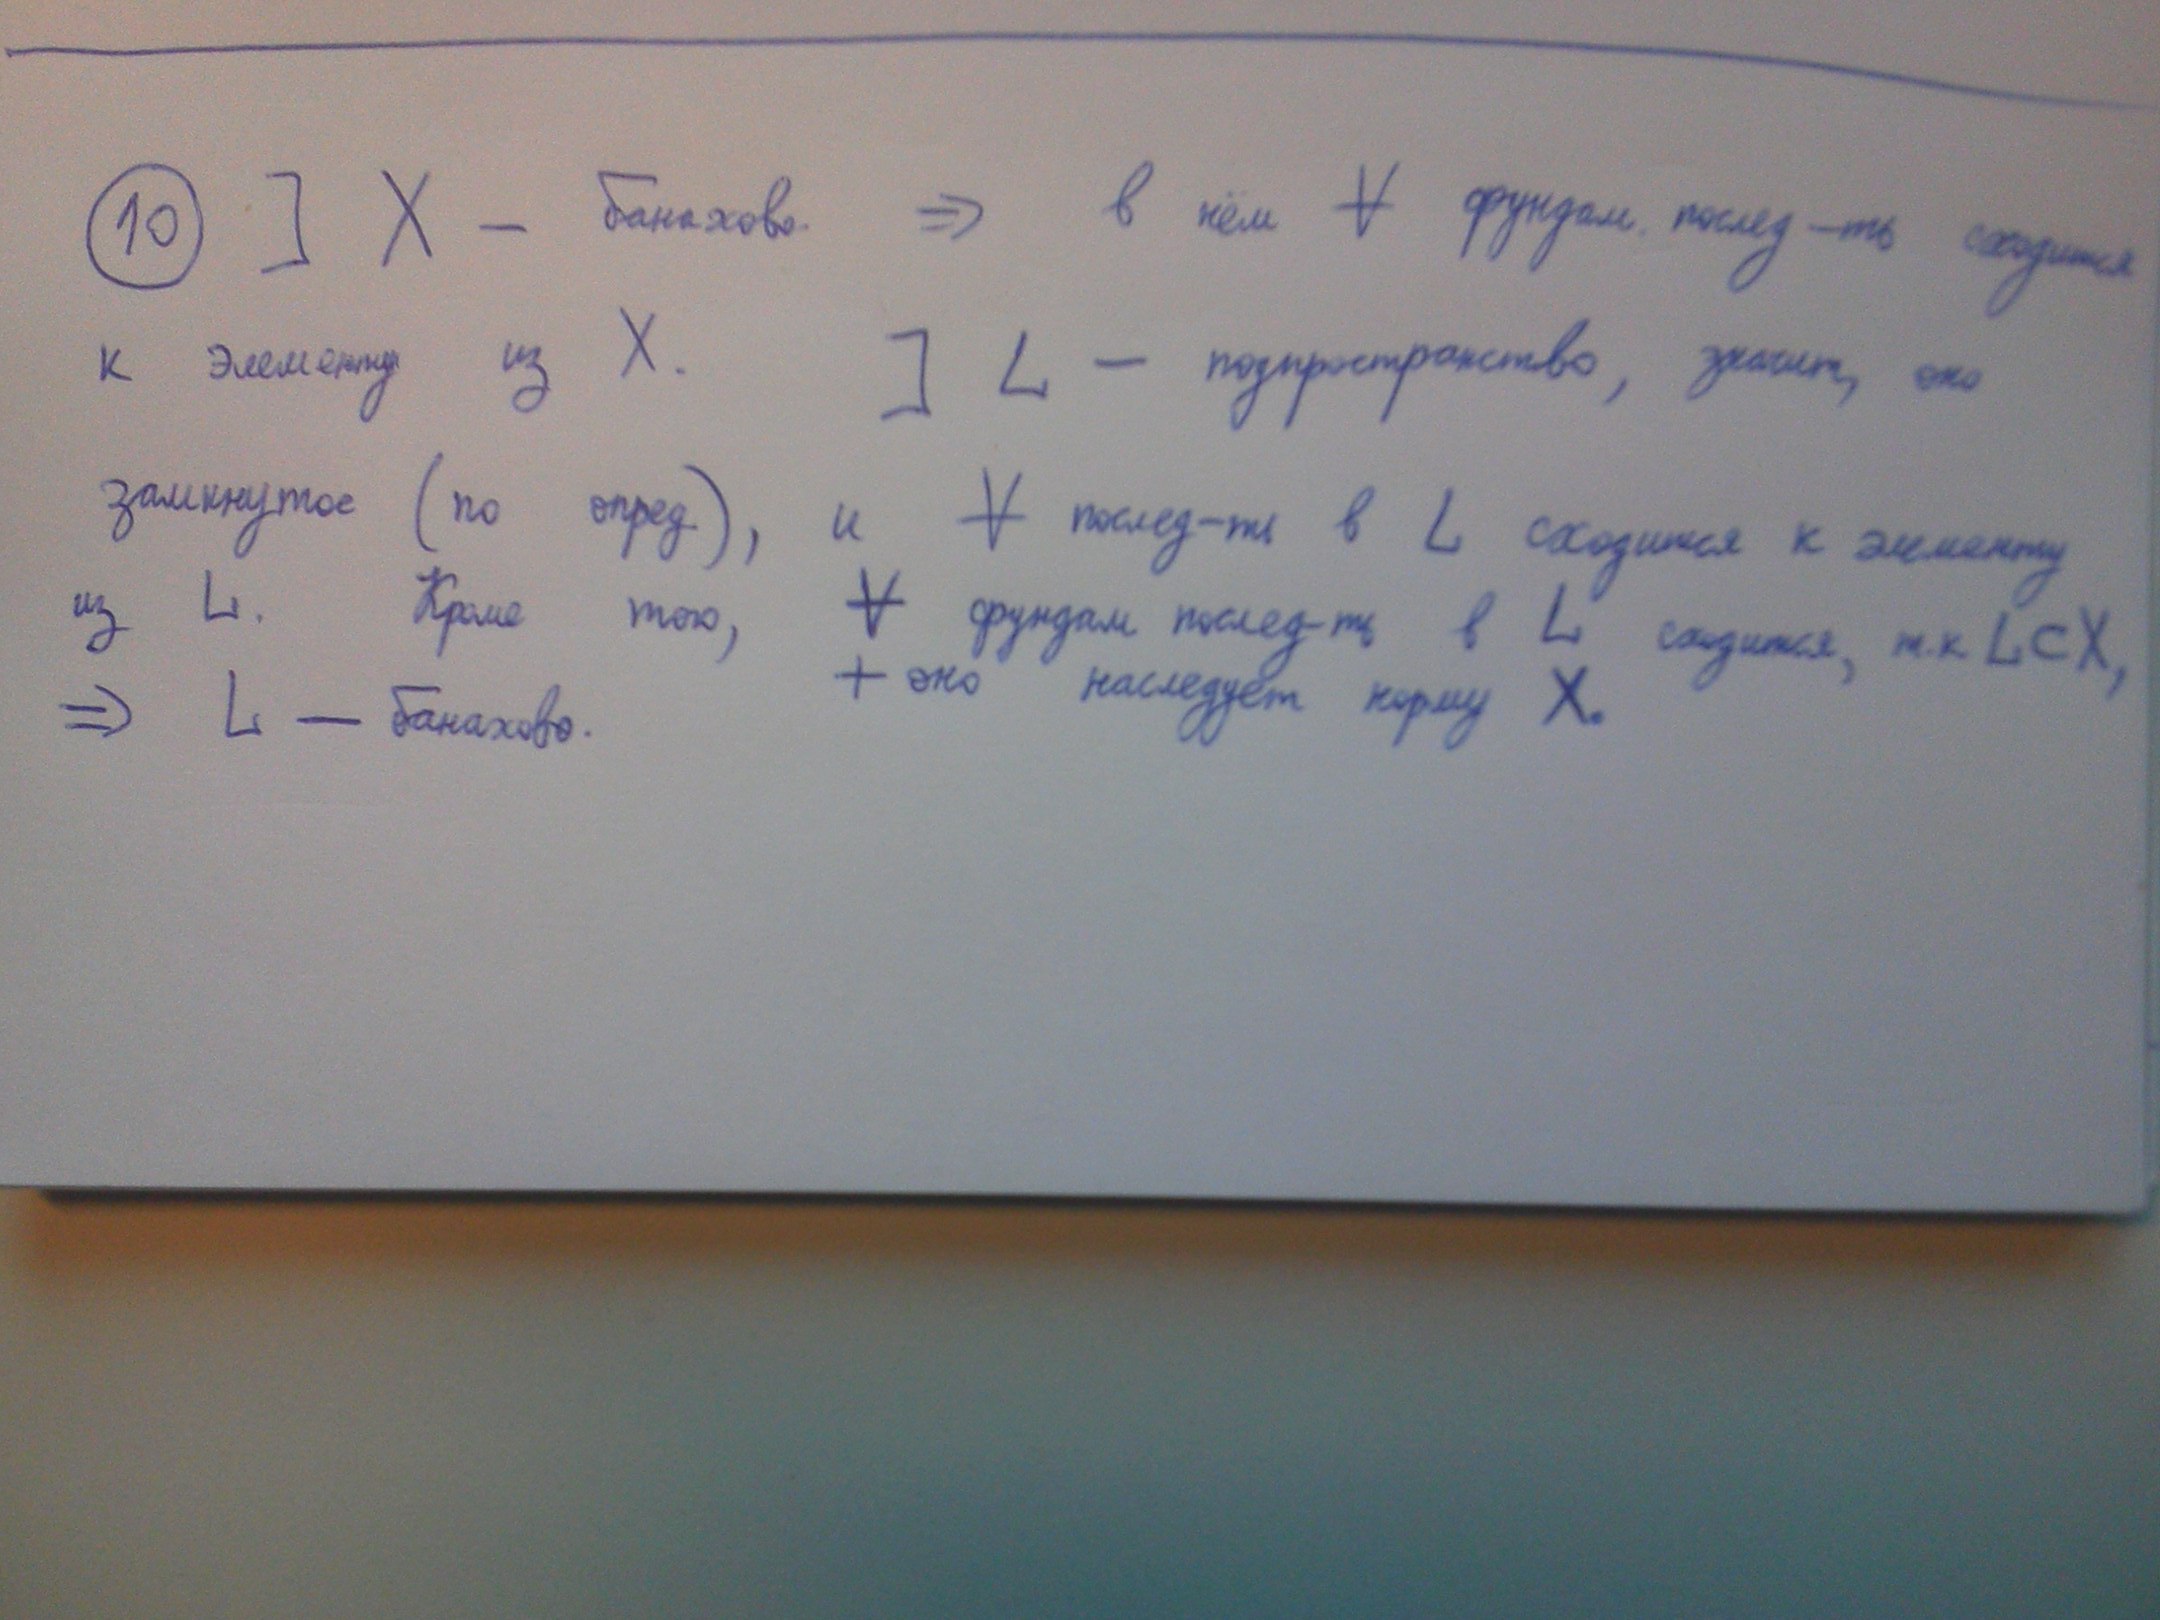 10 ] X – банахово. ⇒ в нём ∀ фундам. послед-ть сходится
к элементу из X. ] L – подпространство, значит, оно
замкнутое (по опред), и ∀ послед-ть в L сходится к элементу
из L. Кроме того, ∀ фундам послед-ть в L сходится, т.к L⊂X,
+ оно наследует норму X.
⇒ L – банахово.